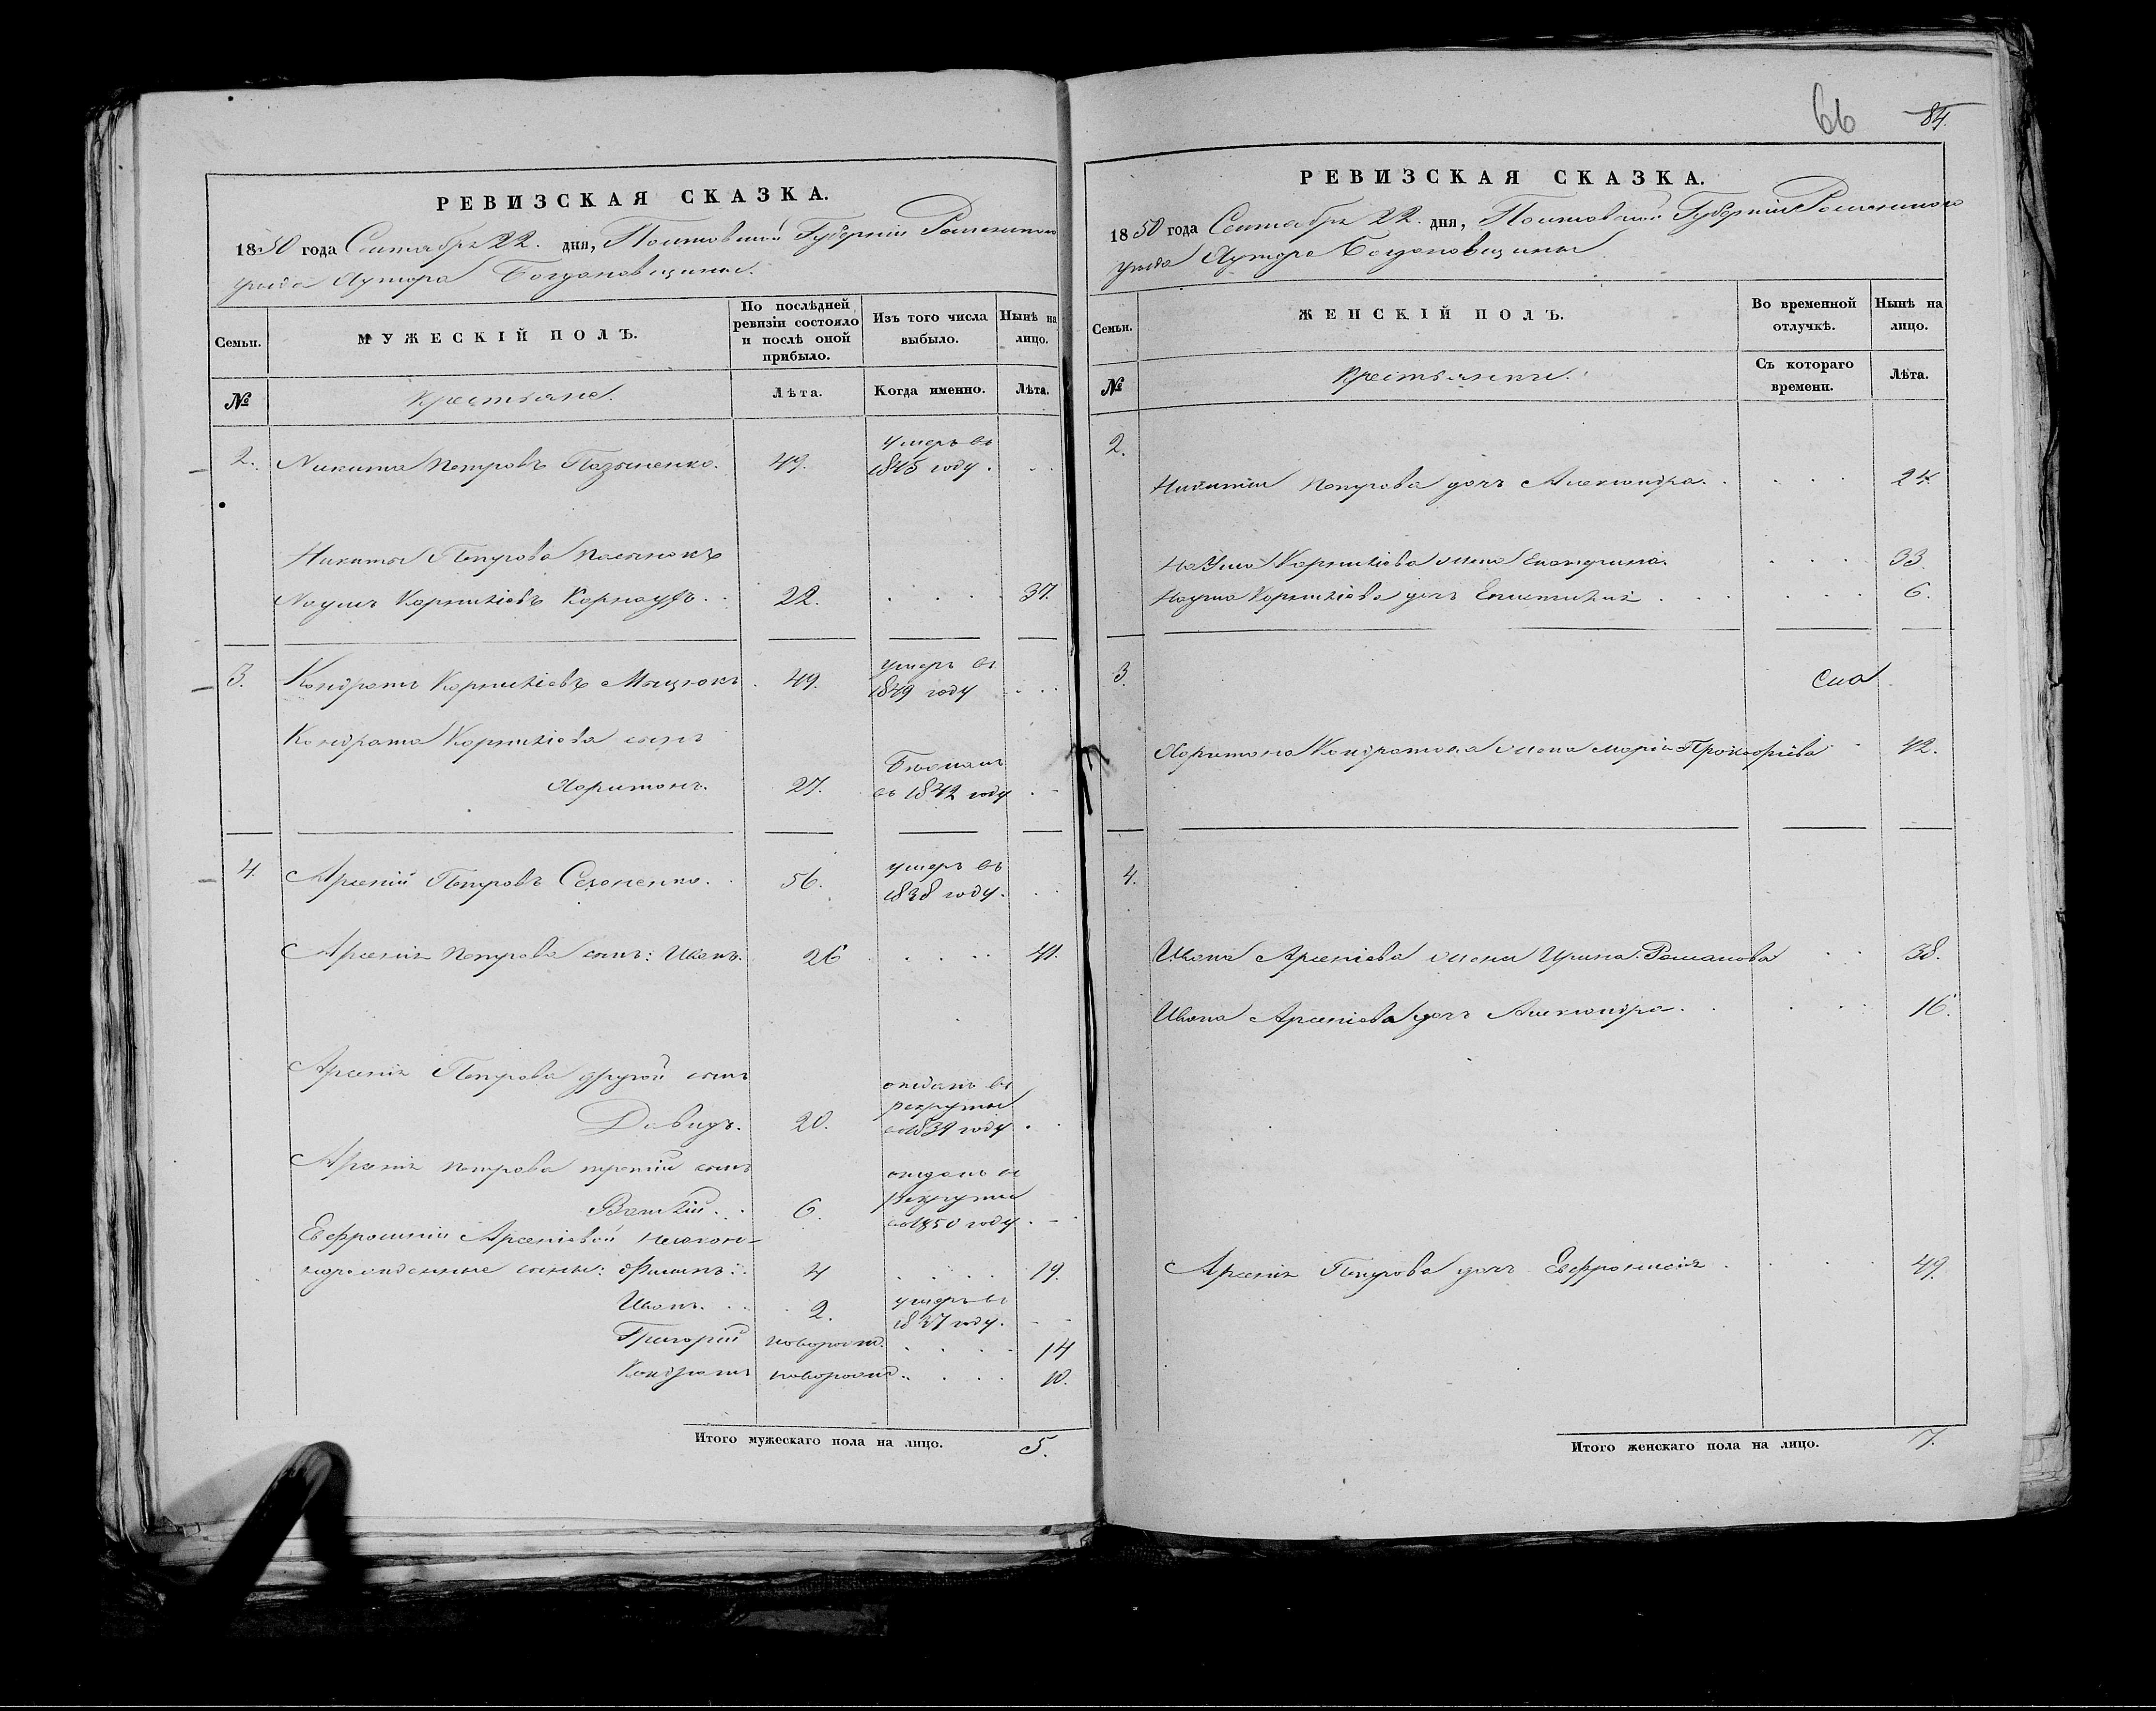 РЕВИЗСКАЯ СКАЗКА.
1850 года Сентября 22. дня, Полтавской Губерніи Роменскаго
уезда Хутора Богдановщины.
Семьи.
МУЖЕСКІЙ ПОЛЪ.
По послѣдней
ревизіи состояло
и послѣ оной
прибыло.
Изъ того числа
выбыло.
Нынѣ на
лицо.
№
Крестьяне.
Лѣта.
Когда именно.
Лѣта.
2. Никита Петровъ 49. умеръ въ
1845 году.
Никиты Петрова пасынокъ
Наумъ Корниліевъ Карнаухъ. 22. 37.
3. Кондратъ Корниліевъ Мацюкъ. 49. умеръ въ
1849 году
Кондрата Корниліева сынъ
Харитонъ. 27. Бежалъ
въ 1842 году
4. Арсеній Петровъ 56. умеръ въ
1838 году.
Арсенія Петрова сынъ: Иванъ. 26 41.
Арсенія Петрова другой сынъ
Давидъ. 20. отданъ въ
рекруты
въ 1839 году.
Арсенія Петрова третій сынъ
6. отданъ въ
рекруты
въ 1850 году.
Евфросиніи Арсеніевой незакон-
норожденные сыны: Филипъ. 4 19.
Иванъ. 2. умеръ въ
1837 году.
Григорій новорожд. 14
Кондратъ новорожд. 10.
Итого мужескаго пола на лицо. 5.
66 84.
РЕВИЗСКАЯ СКАЗКА.
1850 года Сентября 22. дня, Полтавской Губерніи Роменскаго
уезда Хутора Богдановщины.
Семьи.
ЖЕНСКІЙ ПОЛЪ.
Во временной
отлучкѣ.
Нынѣ на
лицо.
№
Крестьянки.
Съ котораго
времени.
Лѣта.
2.
Никиты Петрова дочь Александра. 24.
Наума Корниліева жена Екатерина. 33.
Наума Корниліева дочь 6.
3.
Харитона Кондратова жена Марія Прокофіева 42.
4.
Ивана Арсеніева жена Ирина Романова 38.
Ивана Арсеніева дочь Александра. 16.
Арсенія Петрова дочь Евфросинія 49.
Итого женскаго пола на лицо. 7.